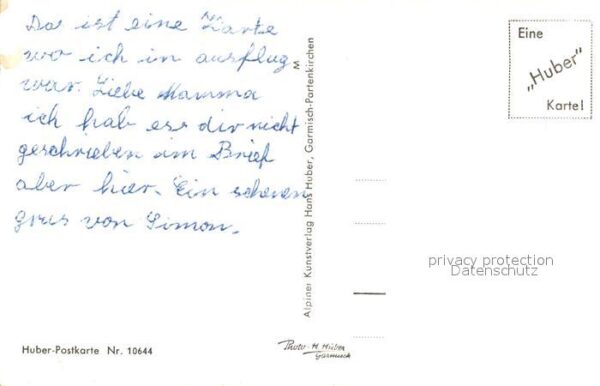 Da ist eine Karte
wo ich in ausflug
war. Liebe Mamma
ich hab ess dir nicht
geschrieben im Brief
aber hier. Ein schenen
grus von Simon.
Eine
„Huber"
Karte!
M
Alpiner Kunstverlag Hans Huber, Garmisch-Partenkirchen
privacy protection
Datenschutz
Huber-Postkarte Nr. 10644
Photo-H. Huber
Garmisch